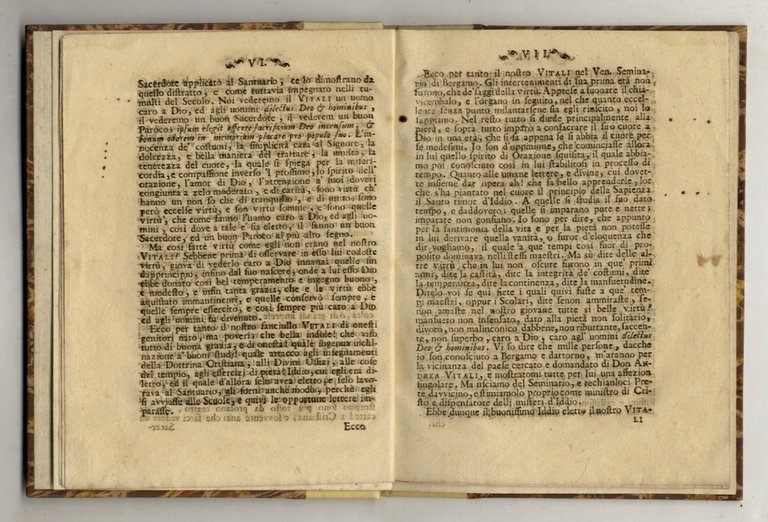 VI.
Sacerdote applicato al Santuario, ce lo dimostrano da
questo distratto, e come tuttavia impegnato nelli tu-
multi del Secolo. Noi vederemo il VITALI un uomo
caro a Dio, ed agli uomini dilectus Deo & hominibus,
il vederemo un buon Sacerdote, il vederem un buon
Paroco: ipsum elegit offerre sacrificium Deo incensum, &
bonum odorem in memoriam placare pro populo suo. L'in-
nocenza de' costumi, la simplicità cara al Signore, la
dolcezza, e bella maniera del trattare, la umiltà, la
tenerezza del cuore, la quale si spiega per la miseri-
cordia, e compassione inverso 'l prossimo, lo spirito dell'
orazione, l'amor di Dio, l'attenzione a' suoi doveri
congiunta a zelo moderato, e di carità, sono virtù ch'
hanno un non so che di tranquillo, e di unito: sono
però eccelse virtù, e son virtù somme, e sono quelle
virtù, che come fanno l'uomo caro a Dio, ed agli uo-
mini, così dove a tale è sia eletto, il fanno un buon
Sacerdote, ed un buon Paroco al più alto segno.
Ma così fatte virtù come egli non erano nel nostro
VITALI? Sebbene prima di osservare in esso lui codeste
virtù, giova di vederlo caro a Dio innanzi quelle sin
dapprincipio, infino dal suo nascere, onde a lui esso Dio
ebbe donato così bel temperamento e ingegno buono,
e modesto, e infin tanta grazia, che e le virtù ebbe
aquistato immantinenti, e quelle conservò sempre, e
quelle sempre essercitò, e così sempre più caro a Dio
ed agli uomini fu divenuto.
Ecco per tanto il nostro fanciullo VITALI di onesti
genitori nato, ma poveri: che bella indole! che viso
tutto di buona grazia, e di onestà! quale ingenua inchi-
nazione a' buoni studj! quale attacco agli insegnamenti
della Dottrina Cristiana, alli Divini Uffizj, alle cose
del tempio, agli esercizj di pietà! Iddio, cui egli era di-
letto, ed il quale d'allora selo avea eletto, e selo lavo-
rava al Santuario, gli fornì anche modo, perchè egli
si avviasse alle Scuole, e quivi le opportune lettere im-
parasse.
Ecco
VII.
Ecco per tanto il nostro VITALI nel Ven. Semina-
rio di Bergamo. Gli intertenimenti di sua prima età non
furono, che de' saggi della virtù. Apprese a suonare il chia-
vicembalo, e l'òrgano in seguito, nel che quanto eccel-
lente senza punto milantarsene sia egli riuscito, noi lo
sappiamo. Nel resto tutto si diede principalmente alla
pietà, e sopra tutto imparò a consacrare il suo cuore a
Dio in una età, che si sa appena se si abbia il cuore per
se medesimi. Io son d'opinione, che cominciasse allora
in lui quello spirito di Orazione squisita, il quale abbia-
mo poi conosciuto così in lui stabilitosi in processo di
tempo. Quanto alle umane lettere, e divine, cui dovet-
te insieme dar opera ah! che fa bello apprenderle, lor
che s'ha piantato nel cuore il principio della Sapienza
il Santo timor d'Iddio. A quelle si studia il suo dato
tempo, e daddovero; quelle si imparano pure e nette;
imparate non gonfiano. Io sono per dire, che appunto
per la santimonia della vita e per la pietà non potesse
in lui derivare quella vanità, o furor d'eloquenza che
dir vogliamo, il quale a que tempi così fuor di pro-
posito dominava nelli stessi maestri. Ma sù dite delle al-
tre virtù, che in lui non oscure furono in que primi
anni; dite la castità, dite la integrità de' costumi, dite
la temperanza, dite la continenza, dite la mansuetudine.
Ditelo voi se qui siete i quali quivi fuste a que tem-
pi maestri, oppur i Scolari, dite se non ammiraste, se
non amaste nel nostro giovane tutte sì belle virtù?
mansueto non insensato, dato alla pietà non solitario,
divoto, non malinconico, dabbene, non ributtante, faccen-
te, non superbo, caro a Dio, caro agl' uomini dilectus
Deo & hominibus. Vi so dire che mille persone, dacchè
io son conosciuto a Bergamo e dattorno, m'aranno per
la vicinanza del paese cercato e domandato di Don AN-
DREA VITALI, e mostratomi tutte per lui una affezion
singolare. Ma usciamo del Seminario, e rechianloci Pre-
te davvicino, e stimiamolo proprio come ministro di Cri-
sto e dispensatore delli misteri d'Iddio.
Ebbe dunque il buonissimo Iddio eletto il nostro VITA-
LI